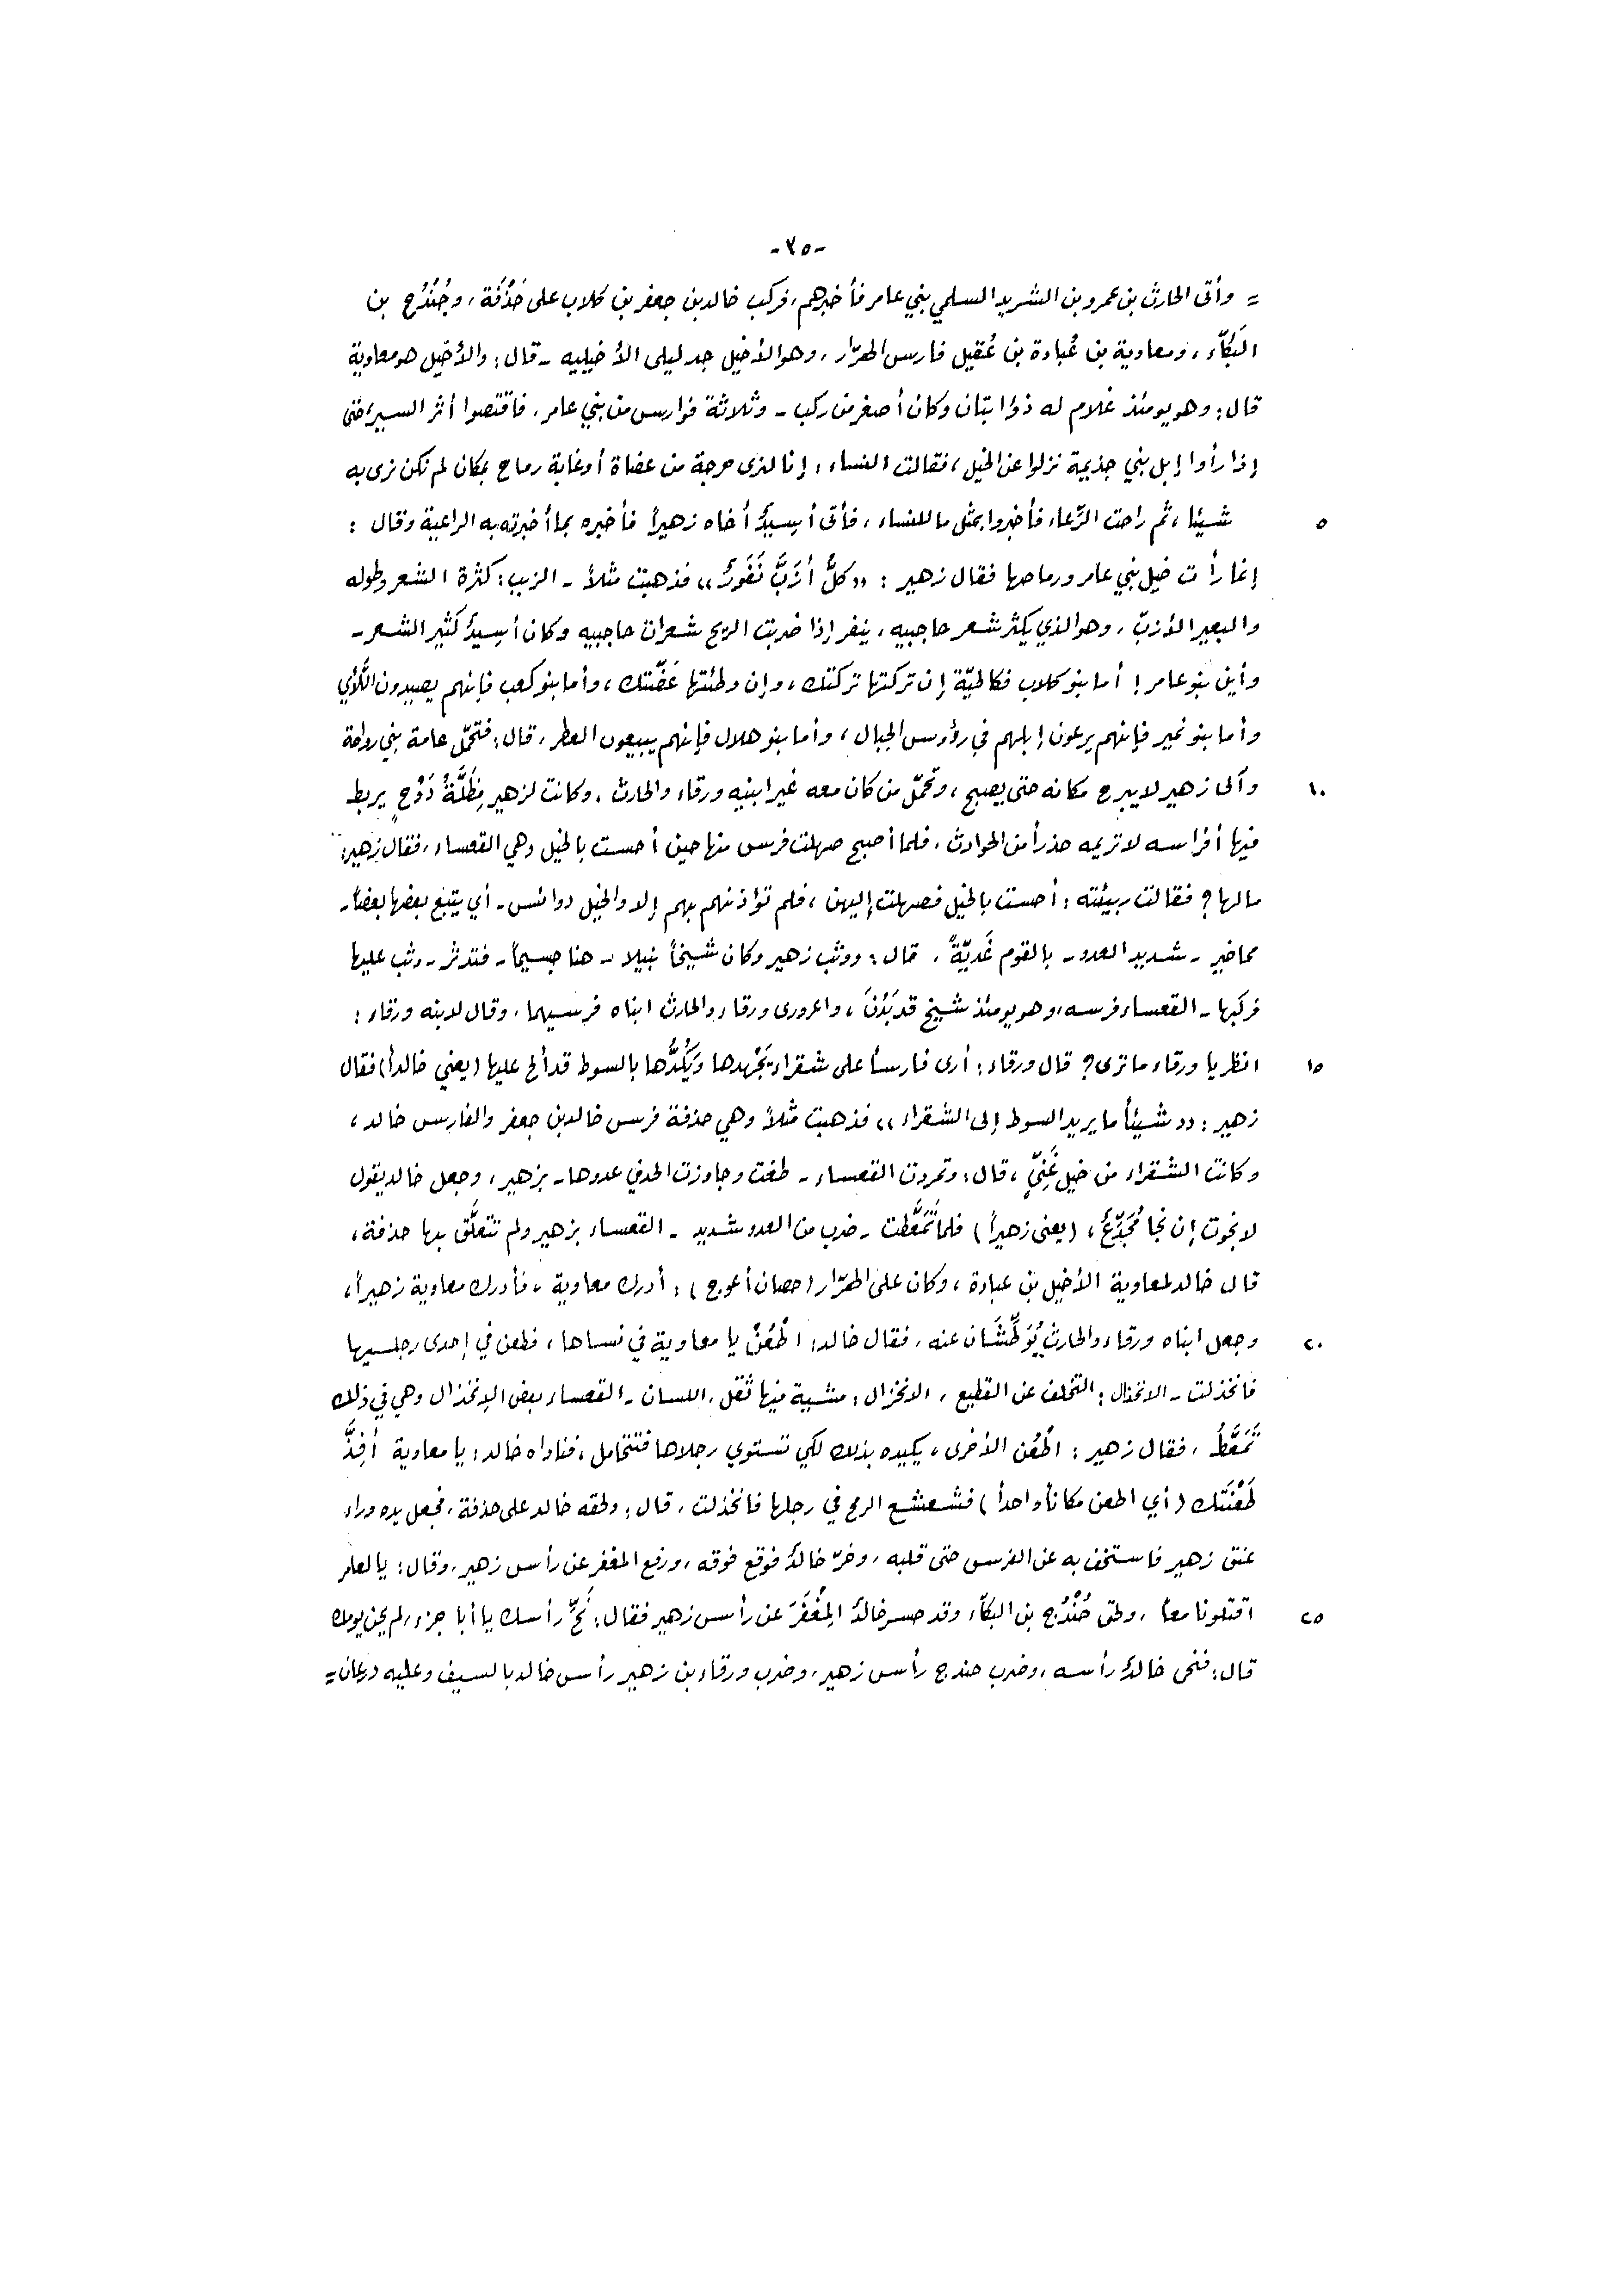 -٣٥-
= وأتى الحارث بن عمرو بن الشريد السلمي بني عامر فأخبرهم، فركب خالد بن جعفر بن كلاب على حَذْفَة، وحُنْدُج بن
البَكَّاء، ومعاوية بن عُبادة بن عُقيل فارس الهرّار، وهو الأخيل جد ليلى الأخيليه - قال: والأخيل هو معاوية
قال: وهو يومئذ غلام له ذؤابتان وكان أصغر من ركب - وثلاثة فوارس من بني عامر، فاقتصوا أثر السير، حتى
إذا رأوا إبل بني جذيمة نزلوا عن الخيل، فقالت النساء: إنا لنرى حرجة من عضاة أو غابة رماح بمكان لم نكن نرى به
٥ شيئا، ثم راحت الرِّعاء فأخبروا بمثل ما للنساء، فأتى أسِيدٌ أخاه زهيراً فأخبره بما أخبرته به الراعية وقال:
إنما رأت خيل بني عامر ورماحها فقال زهير: «كلُّ أزَبَّ نَفُورٌ» فذهبت مثلاً - الزبب: كثرة الشعر وطوله
والبعير الأزبّ، وهو الذي يكثر شعر حاجبيه، ينفر إذا ضربت الريح شعرات حاجبيه وكان أسِيدٌ كثير الشعر -
وأين بنو عامر! أما بنو كلاب فكالحيّة إن تركتها تركتك، وإن وطئتها عَضَّتك، وأما بنو كعب فإنهم يصيدون اللَّأي
وأما بنو نمير فإنهم يرعون إبلهم في رؤوس الجبال، وأما بنو هلال فإنهم يبيعون العطر، قال: فتحمّل عامة بني رواحة
١٠ وآلى زهير لا يبرح مكانه حتى يصبح، وتحمّل من كان معه غير ابنيه ورقاء والحارث، وكانت لزهير مِظَلَّةُ دَوْحٍ يربط
فيها أفراسه لا تريمه حذراً من الحوادث، فلما أصبح صهلت فرس منها حين أحست بالخيل وهي القعساء، فقال زهير:
مالها؟ فقالت ربيئته: أحست بالخيل فصهلت إليهن، فلم تؤذنهم بهم إلا والخيل دوائس - أي يتبع بعضها بعضاً -
محاضير - شديد العدو - بالقوم غَدِيّةً، قال: ووثب زهير وكان شيخاً نبيلا - هنا جسيماً - فتدثر - وثب عليها
فركبها - القعساء فرسه، وهو يومئذ شيخ قد بَدُنَ، واعرورى ورقاء والحارث ابناه فرسيهما، وقال لابنه ورقاء:
١٥ انظر يا ورقاء ما ترى؟ قال ورقاء: أرى فارساً على شقراء يَجْهدها ويَكُدُّها بالسوط قد ألح عليها (يعني خالداً) فقال
زهير: «شيئاً ما يريد السوط إلى الشقراء» فذهبت مثلاً وهي حذفة فرس خالد بن جعفر والفارس خالد،
وكانت الشقراء من خيل غَنِيٍّ، قال: وتمردت القعساء - طغت وجاوزت الحد في عدوها - بزهير، وجعل خالد يقول
لا نجوت إن نجا مُجَدِّعٌ، (يعني زهيراً) فلما تَمَعَّطت - ضرب من العدو شديد - القعساء بزهير ولم تتعلّق بها حذفة،
قال خالد لمعاوية الأخيل بن عبادة، وكان على الهرّار (حصان أعوج): أدرك معاوية، فأدرك معاوية زهيراً،
٢٠ وجعل ابناه ورقاء والحارث يُوَطِّشَان عنه، فقال خالد: اطْعُنْ يا معاوية في نساها، فطعن في إحدى رجلسيها
فانخذلت - الانخذال: التخلف عن القطيع، الانخزال: مشية فيها ثقل، اللسان - القعساء بعض الإنخذال وهي في ذلك
تَمَعَّطُ، فقال زهير: اطْعُن الأخرى، يكيده بذلك لكي تستوي رجلاها فتتحامل، فناداه خالد: يا معاوية أفِذَّ
طَعْنَتك (أي اطعن مكاناً واحداً) فشعشع الرمح في رجلها فانخذلت، قال: ولحقه خالد على حذفة، فجعل يده وراء
عنق زهير فاستخف به عن الفرس حتى قلبه، وخرّ خالدٌ فوقع فوقه، ورفع المغفر عن رأس زهير، وقال: يا لعامر
٢٥ اقتلونا معاً، ولحق حُنْدُج بن البكّاء وقد حسر خالدٌ المِغْفَرَ عن رأس زهير فقال: نَحِّ رأسك يا أبا جزء، لم يحن يومك
قال: فنحى خالدٌ رأسه، وضرب حندج رأس زهير، وضرب ورقاء بن زهير رأس خالد بالسيف وعليه درعان =